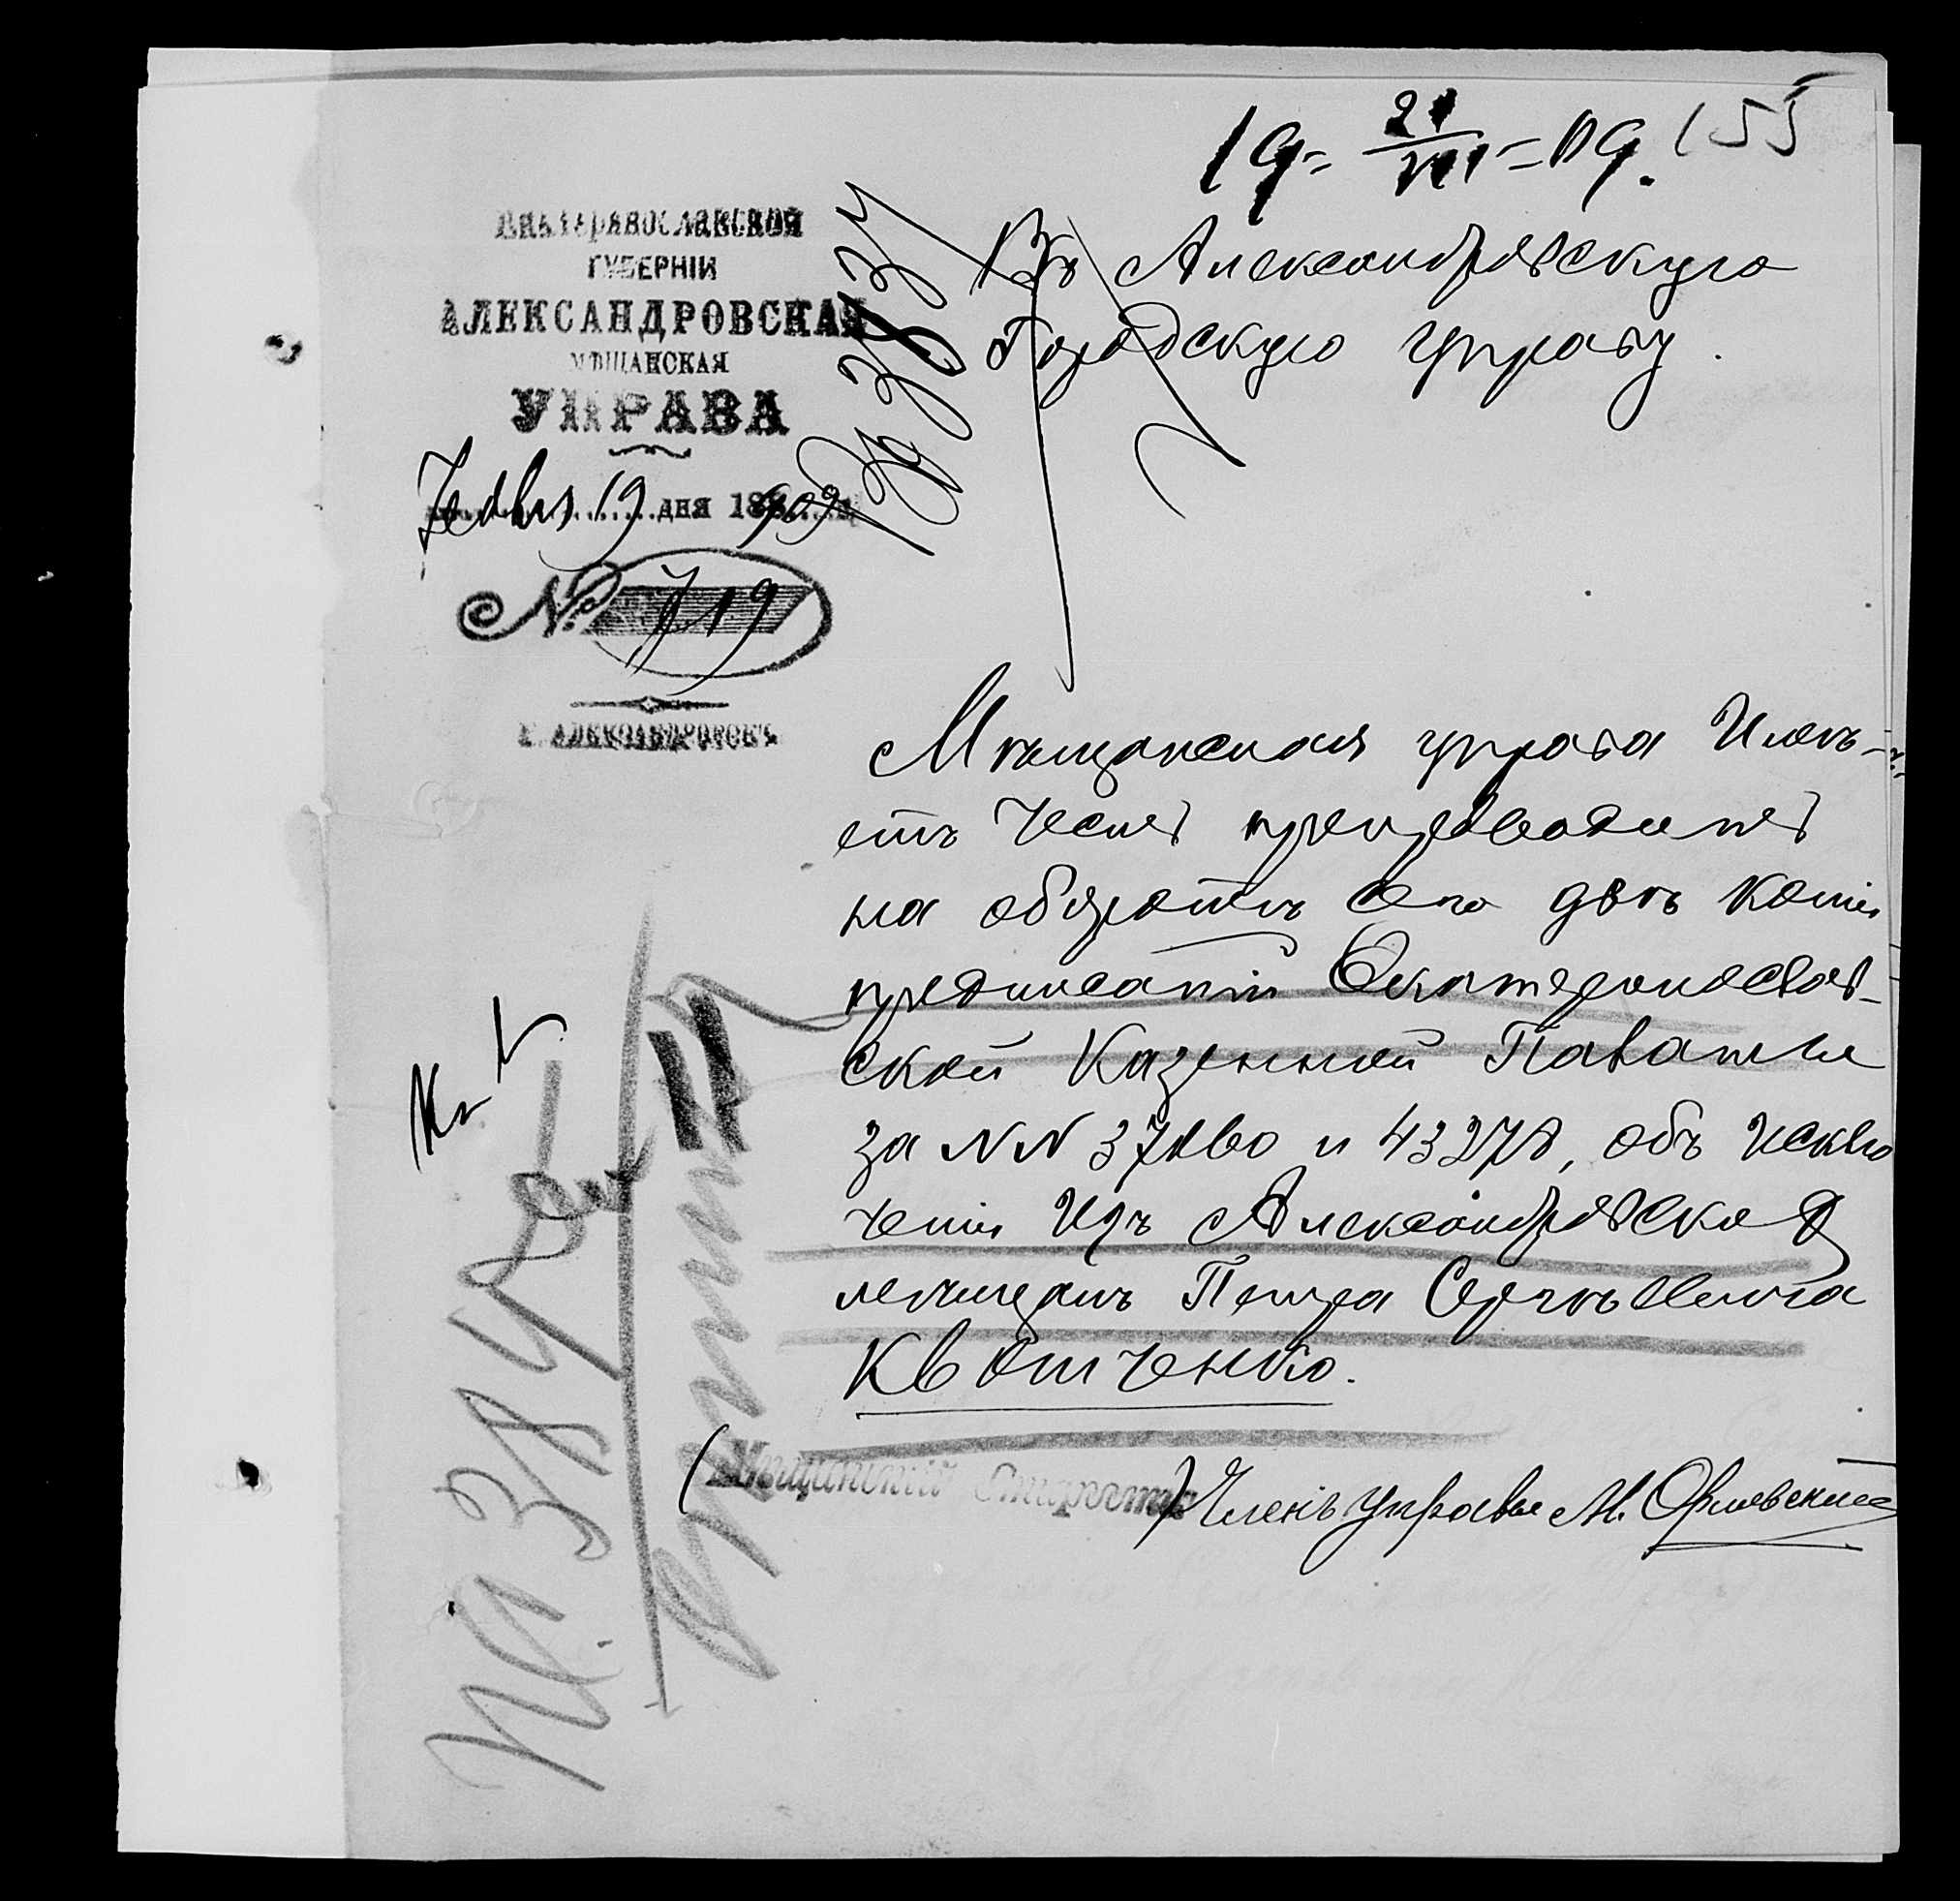 19 = 21/VIII = 09. 155
Екатеринославской
губерніи
АЛЕКСАНДРОВСКАЯ
МѢЩАНСКАЯ
УПРАВА
19 дня 1909
№ 719
г. АЛЕКСАНДРОВСКЪ
Въ Александровскую
Городскую управу.
Мѣщанская управа Имѣ-
етъ честь препроводить
на оборотѣ сего двѣ копіи
предписаній Екатеринослав-
ской Казенной Палаты
за NN и 43278, объ исклю
ченіи Изъ Александровско
мѣщанъ Петра Сергѣевича
Квятченко.
(Мѣщанскій Староста) Членъ управы М. Орловскій